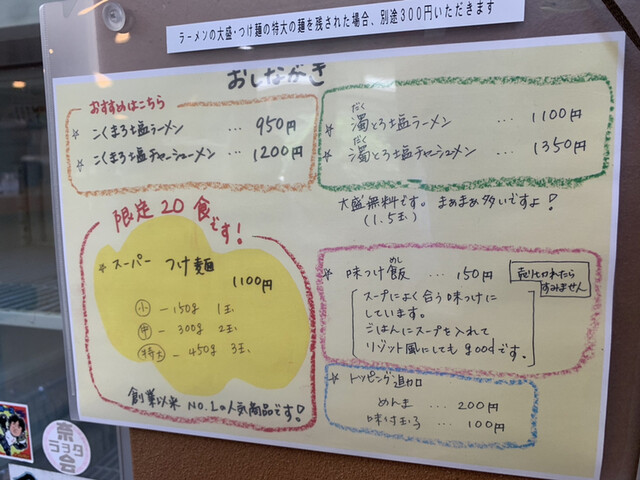 ラーメンの大盛・つけ麺の特大の麺を残された場合、別途300円いただきます
おしながき
おすすめはこちら
☆ こくまろ塩ラーメン … 950円
☆ こくまろ塩チャーシューメン … 1200円
だく
☆ 濁とろ塩ラーメン … 1100円
だく
☆ 濁とろ塩チャーシューメン … 1350円
大盛無料です。まぁまぁ多いですよ!
(1.5玉)
限定20食です!
☆ スーパー つけ麺
1100円
小 - 150g 1玉
中 - 300g 2玉
特大 - 450g 3玉
創業以来 NO.1の人気商品です!
めし
☆ 味つけ飯 … 150円
売り切れたら
すみません
スープによく合う味つけに
しています。
ごはんにスープを入れて
リゾット風にしてもgoodです。
☆ トッピング追加
めんま … 200円
味付玉子 … 100円
奈
ラヲタ
会